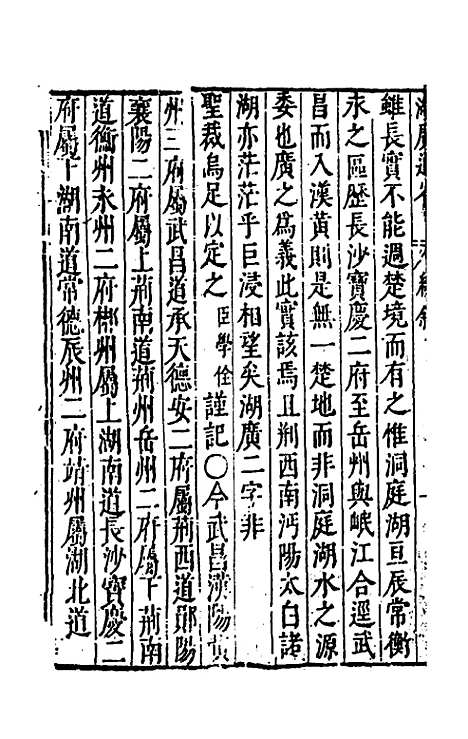 雖長實不能週楚境而有之惟洞庭湖亘辰常衡
永之區歷長沙寶慶二府至岳州與岷江合逕武
昌而入漢黃則是無一楚地而非洞庭湖水之源
委也廣之為義此實該焉且荆西南沔陽太白諸
湖亦茫茫乎巨浸相望矣湖廣二字非
聖裁烏足以定之臣學佺謹記○今武昌漢陽黃
州三府屬武昌道承天德安二府屬荊西道鄖陽
襄陽二府屬上荊南道荊州岳州二府屬下荊南
道衡州永州二府郴州屬上湖南道長沙寶慶二
府屬下湖南道常德辰州二府靖州屬湖北道